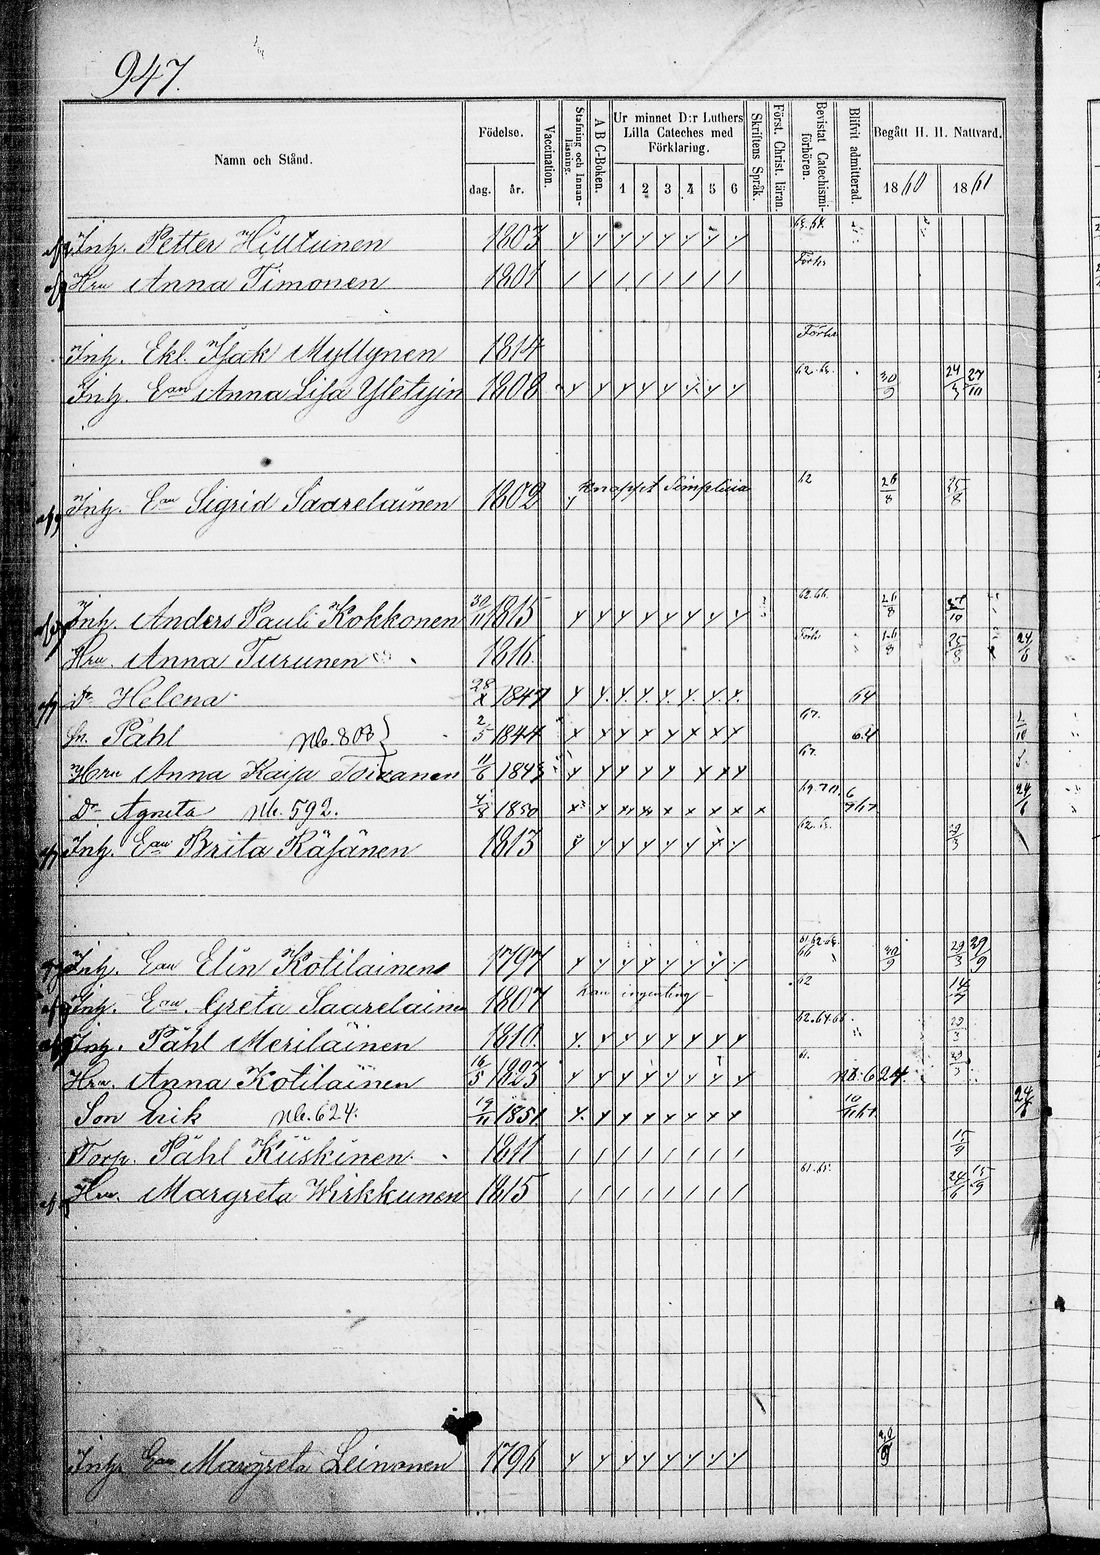 947.
Namn och Stånd. Födelse. dag. år. Vaccination. Stafning och Innanläsning. A B C-Boken. Ur minnet D:r Luthers Lilla Cateches med Förklaring. 1 2 3 4 5 6 Skriftens Språk. Först. Christ. läran. Bevistat Catechismi-förhören. Blifvit admitterad. Begått H. H. Nattvard. 1860 1861
Inh. Petter Hiltunen 1803
Hru Anna Timonen 1801
Inh. Ekl. Isak Myllynen 1814
Inh. Ean Anna Lisa 1808 30/9 24/3 27/10
Inh. Ean Sigrid Saarelainen 1802 knappt Simplicia 62 26/8 25/8
Inh. Anders Paul Kokkonen 30/11 1815 62.66. 26/8 27/10
Hru. Anna Turunen 1816. 26/8 25/8 24/6
Dr Helena 1847 64
Sn. Påhl No. 803 2/5 1844 67. 64 2/10
Hru Anna Kaisa Toivanen 11/6 1843 67.
Dr Agneta No. 592. 4/8 1850 24/6
Inh. Ean Brita Räsänen 1813 29/3
Inh. Ean Elin Kotilainen 1797 30/9 29/3 29/9
Inh. Ean. Greta Saarelainen 1807 kan ingenting 62 14/7
Inh. Påhl Meriläinen 1810. 62.64.66 29/3
Hru. Anna Kotilainen 16/5 1823 61. No. 624. 29/3
Son Erik No. 624. 19/11 1851 24/6
Torp. Påhl Kiiskinen 1811 15/9
Hru. Margreta Wirkkunen 1815 61.65. 24/6 15/9
Inh. Ean Margreta Leinonen 1796 30/9